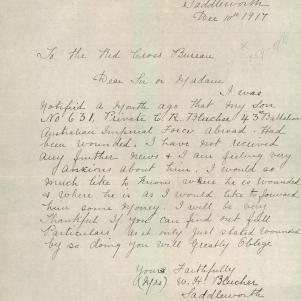 Saddleworth
Dec 10th 1917
To The Red Cross Bureau
Dear Sir or Madam
I was
notified a Month ago that my Son
No 631. Private C. R. Blucher 43rd Battalion
Australian Imperial Force Abroad. Had
been wounded. I have not received
any further News & I am feeling very
anxious about him. I would so
much like to know where he is wounded
& where he is as I would like to forward
them some Money. I will be very
Thankful If you can find out full
Particulars as it only just stated wounded
by so doing you will Greatly Oblige
Yours Faithfully
(Mrs) W. H. Blucher
Saddleworth